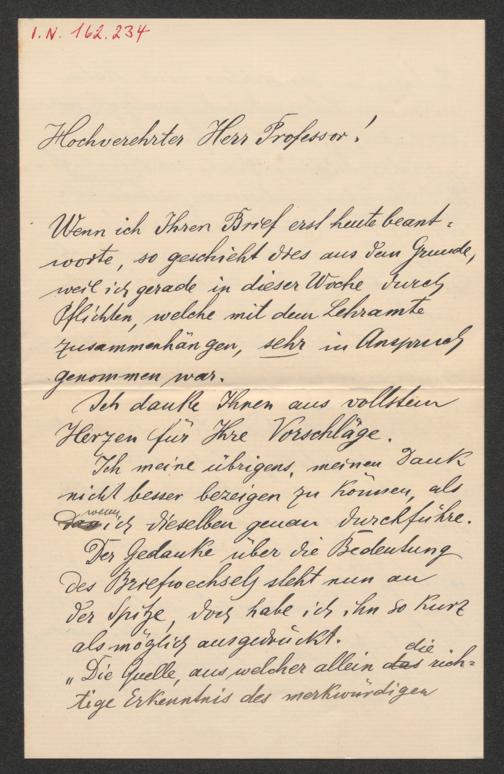 I.N. 162.234
Hochverehrter Herr Professor!
Wenn ich Ihren Brief erst heute beant-
worte, so geschieht dies aus dem Grunde,
weil ich gerade in dieser Woche durch
Pflichten, welche mit dem Lehramte
zusammenhängen, sehr in Anspruch
genommen war.
Ich danke Ihnen aus vollstem
Herzen für Ihre Vorschläge.
Ich meine übrigens, meinen Dank
nicht besser bezeigen zu können, als
wenn
ich dieselben genau durchführe.
Der Gedanke über die Bedeutung
des Briefwechsels steht nun an
der Spitze, doch habe ich ihn so kurz
als möglich ausgedrückt.
die
„Die Quelle, aus welcher allein das rich-
tige Erkenntnis des merkwürdigen